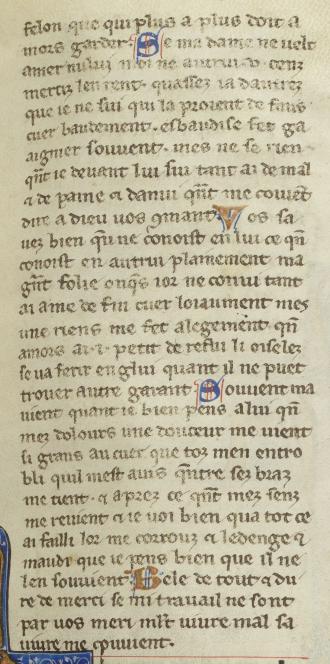 felon que qui plus a plus doit a
mors garder. Se ma dame ne uelt
amer nului moi ne autrui. v. cenz
merciz len rent. quassez ia dautrez
que ie ne sui qui la proient de faus
cuer baudement. esbaudise fet ga
aignier souuent. mes ne se rien
qnt ie deuant lui sui tant ai de mal
⁊ de paine ⁊ danui qnt me couiet
dire a dieu uos qmant. Vos sa
uez bien qn ne conoist en lui ce qn
conoist en autrui plainement ma
gnt folie onqs ior ne connui tant
ai ame de fin cuer loiaument mes
une riens me fet alegement qn
amors ai .i. petit de refui li oiselez
se va ferir en glui quant il ne puet
trouer autre garant. Souuent ma
uient quant ie bien pens a lui qn
mez dolours une douceur me uient
si grans au cuer que toz men entro
bli quil mest auis qntre sez braz
me tient. ⁊ aprez ce qnt mez senz
me reuient ⁊ ie uoi bien qua tot ce
ai failli lor me corrouz ⁊ ledenge ⁊
maudi que ie sens bien que il ne
len souuient. Bele de tout ⁊ du
re de merci se mi trauail ne sont
par uos meri mlt uiure mal sa
uiure me cōuient.